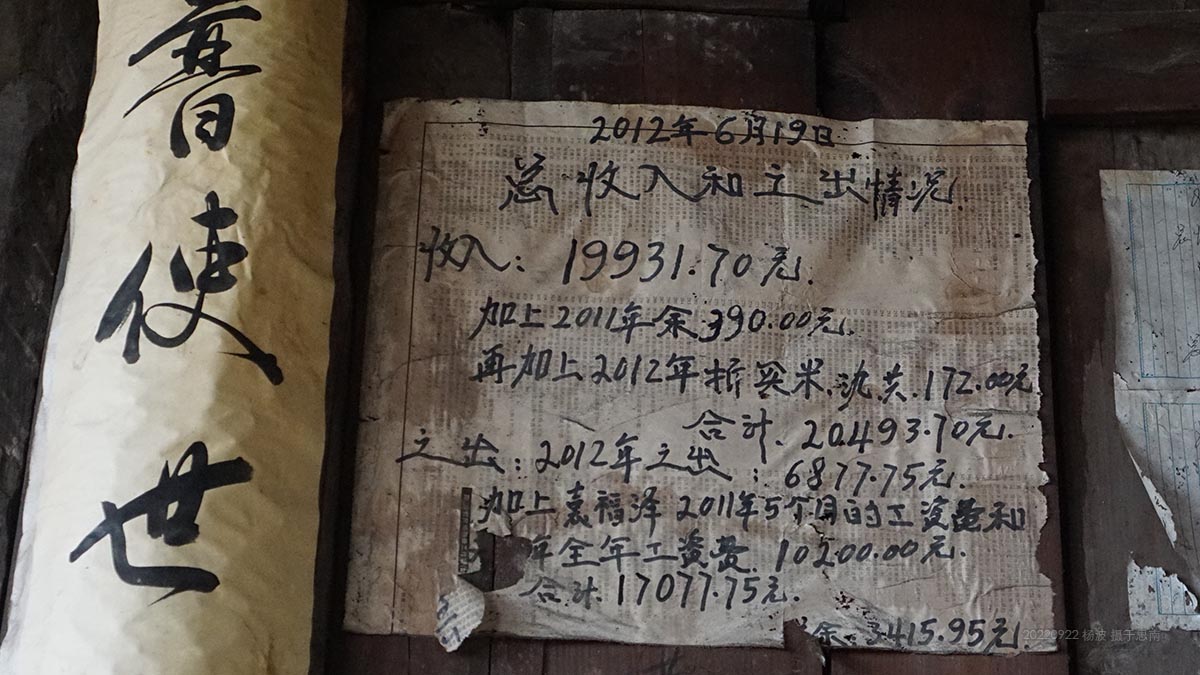 普
使
世
2012年6月19日
总收入和支出情况.
收入: 19931.70元.
加上2011年余390.00元.
再加上2012年折实米、洗共.172.00元
合计.20493.70元.
支出:2012年支出:6877.75元.
加上袁福泽2011年5个月的工资费和
年全年工资费.10200.00元.
合计17077.75元.
余.3415.95元.
20220922 杨波 摄于思南